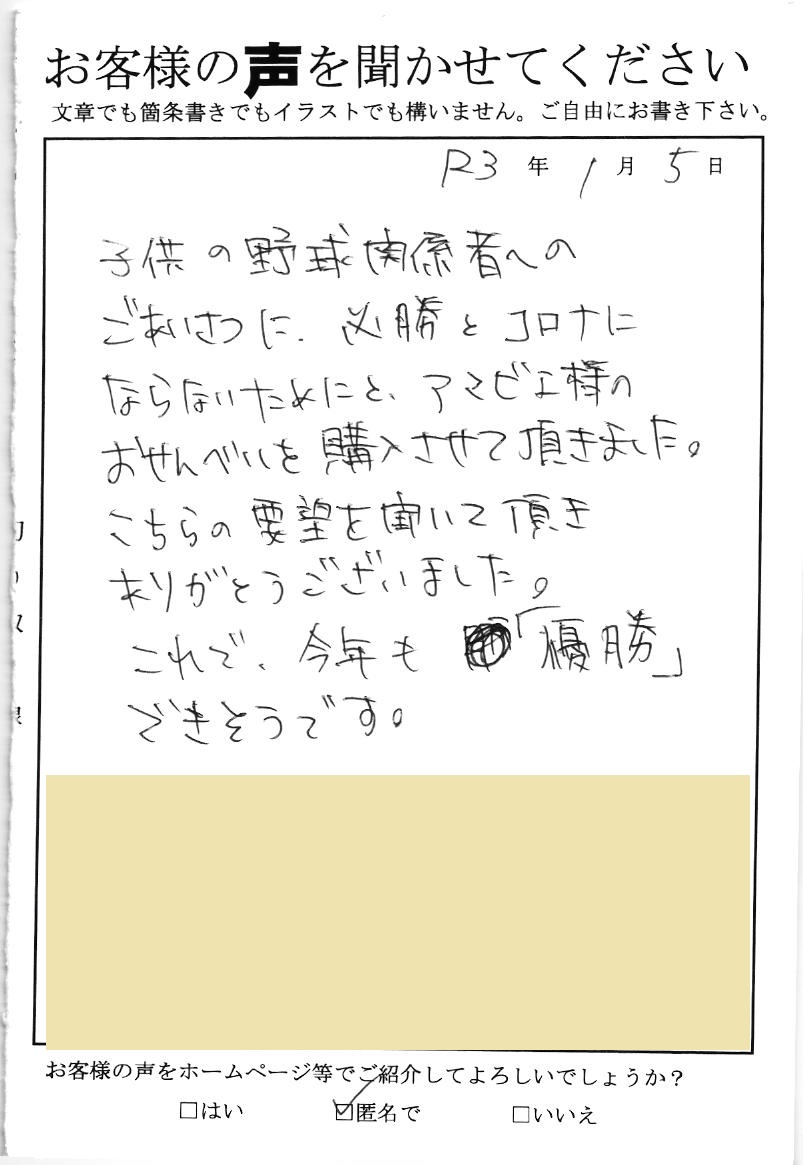 お客様の声を聞かせてください
文章でも箇条書きでもイラストでも構いません。ご自由にお書き下さい。
R3 年 1 月 5 日
子供の野球関係者への
ごあいさつに、必勝とコロナに
ならないためにと、アマビエ様の
おせんべいを購入させて頂きました。
こちらの要望を聞いて頂き
ありがとうございました。
これで、今年も「優勝」
できそうです。
お客様の声をホームページ等でご紹介してよろしいでしょうか？
□はい ☑匿名で □いいえ